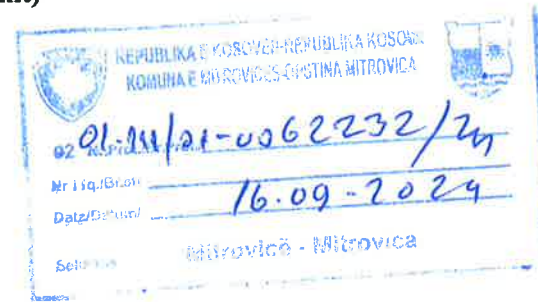 REPUBLIKA E KOSOVËS-REPUBLIKA KOSOVA
KOMUNA E MITROVICËS-OPŠTINA MITROVICA
02 01-24/01-0062232/24
Nr i fq./Br.str
Data/Datum/ 16.09-2024
Mitrovicë - Mitrovica